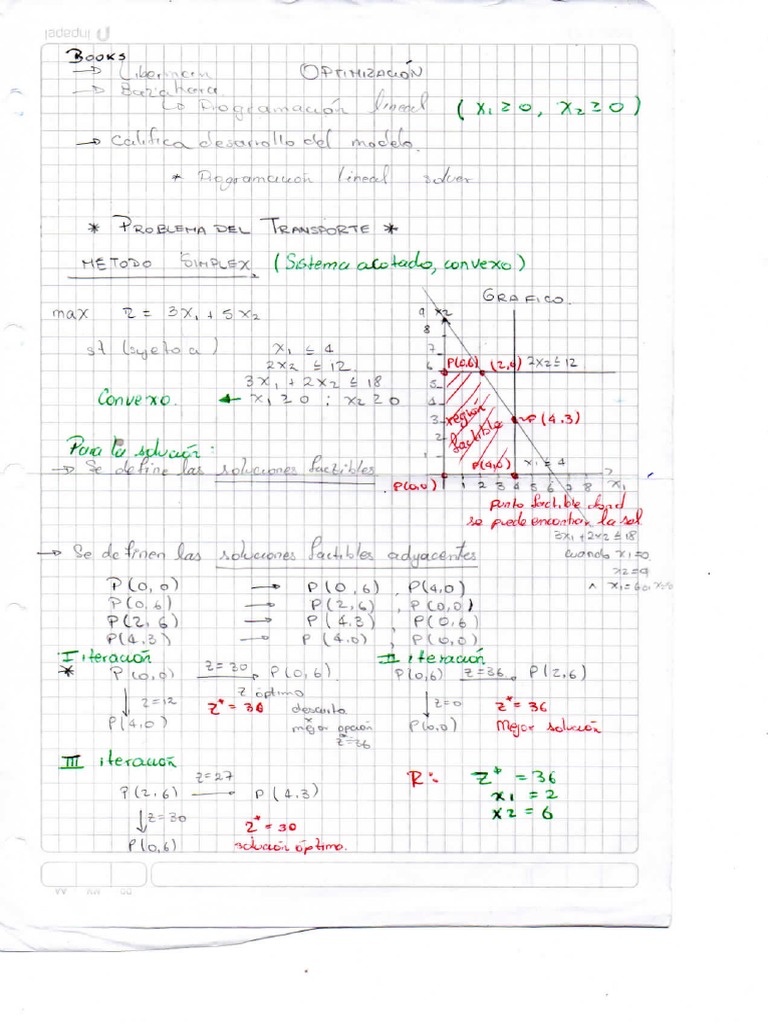 Books
→ Liberman
OPTIMIZACIÓN
→ Bazahara
↳ Programación lineal (x₁ ≥ 0, x₂ ≥ 0)
→ Califica desarrollo del modelo.
* Programación lineal solver
* PROBLEMA DEL TRANSPORTE *
METODO SIMPLEX. (Sistema acotado, convexo)
GRAFICO.
max Z = 3x₁ + 5x₂
st (sujeto a) x₁ ≤ 4
2x₂ ≤ 12.
3x₁ + 2x₂ ≤ 18
Convexo. ← x₁ ≥ 0 ; x₂ ≥ 0
9 x2
8
7
6 P(0,6) (2,6) 2x₂ ≤ 12
5
4
3 región →P(4,3)
2 factible
1 P(4,0) x₁ = 4
P(0,0) 1 2 3 4 5 6 7 8 x₁
punto factible dond
se puede encontrar la sol
3x₁ + 2x₂ ≤ 18
cuando x₁=0
x2=9
Para la solución:
→ Se define las soluciones factibles
→ Se definen las soluciones factibles adyacentes
P(0,0) → P(0,6), P(4,0)
P(0,6) → P(2,6), P(0,0)
P(2,6) → P(4,3), P(0,6)
P(4,3) → P(4,0), P(0,0)
I iteración
* P(0,0) Z=30 → P(0,6)
↓ Z=12 Z óptimo
Z* = 30 descarta
P(4,0) mejor opción
Z*=36
II iteración
P(0,6) Z=36 → P(2,6)
↓ Z=0 Z* = 36
P(0,0) Mejor solución
III iteración
Z=27
P(2,6) → P(4,3)
↓ Z=30 Z* = 30
P(0,6) solución óptimo.
R: Z* = 36
x1 = 2
x2 = 6